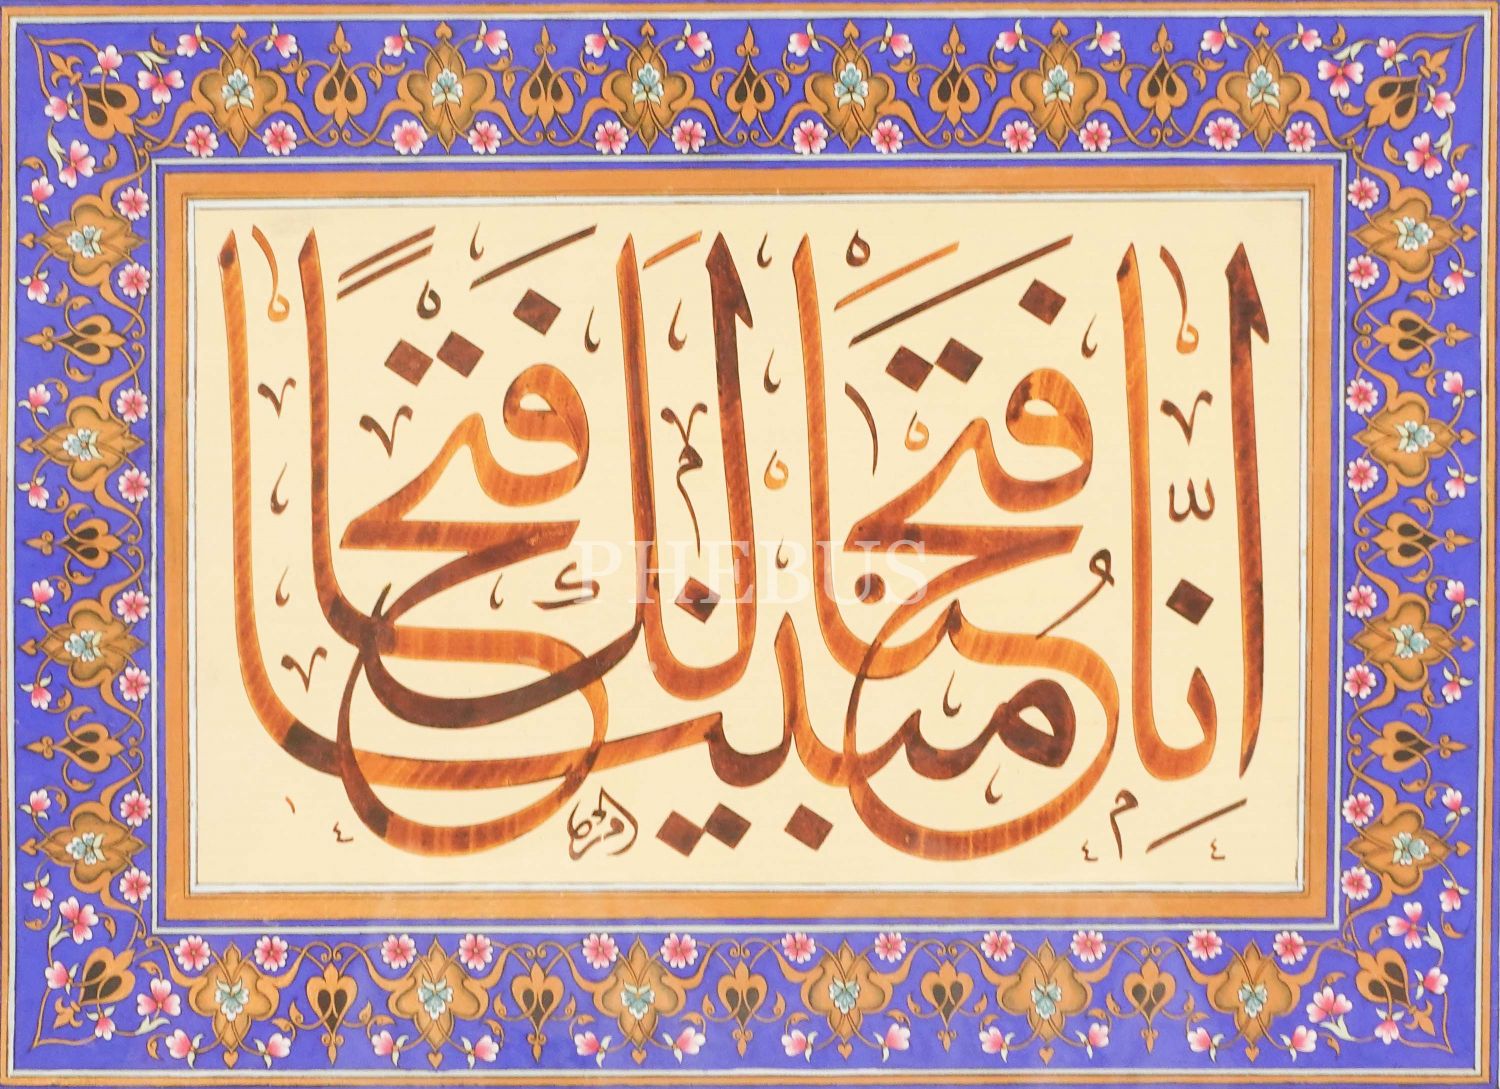 إِنَّا فَتَحْنَا لَكَ فَتْحًا مُبِينًا
١٤٤٤
PHEBUS